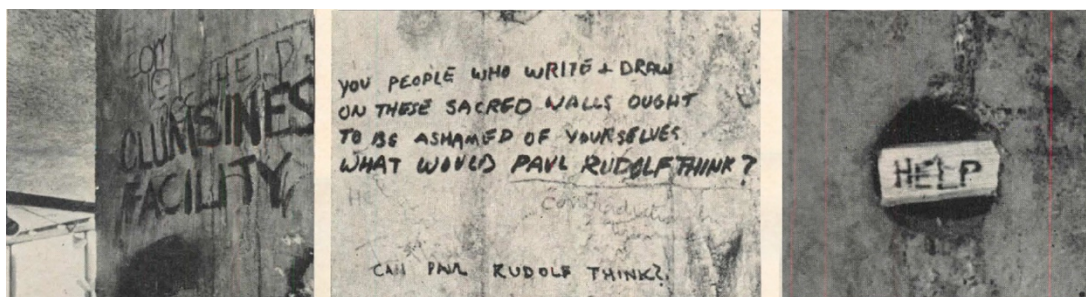 HELP
CLUMSINES
FACILITY
YOU PEOPLE WHO WRITE + DRAW
ON THESE SACRED WALLS OUGHT
TO BE ASHAMED OF YOURSELVES.
WHAT WOULD PAUL RUDOLF THINK?
CAN PAUL RUDOLF THINK?
HELP